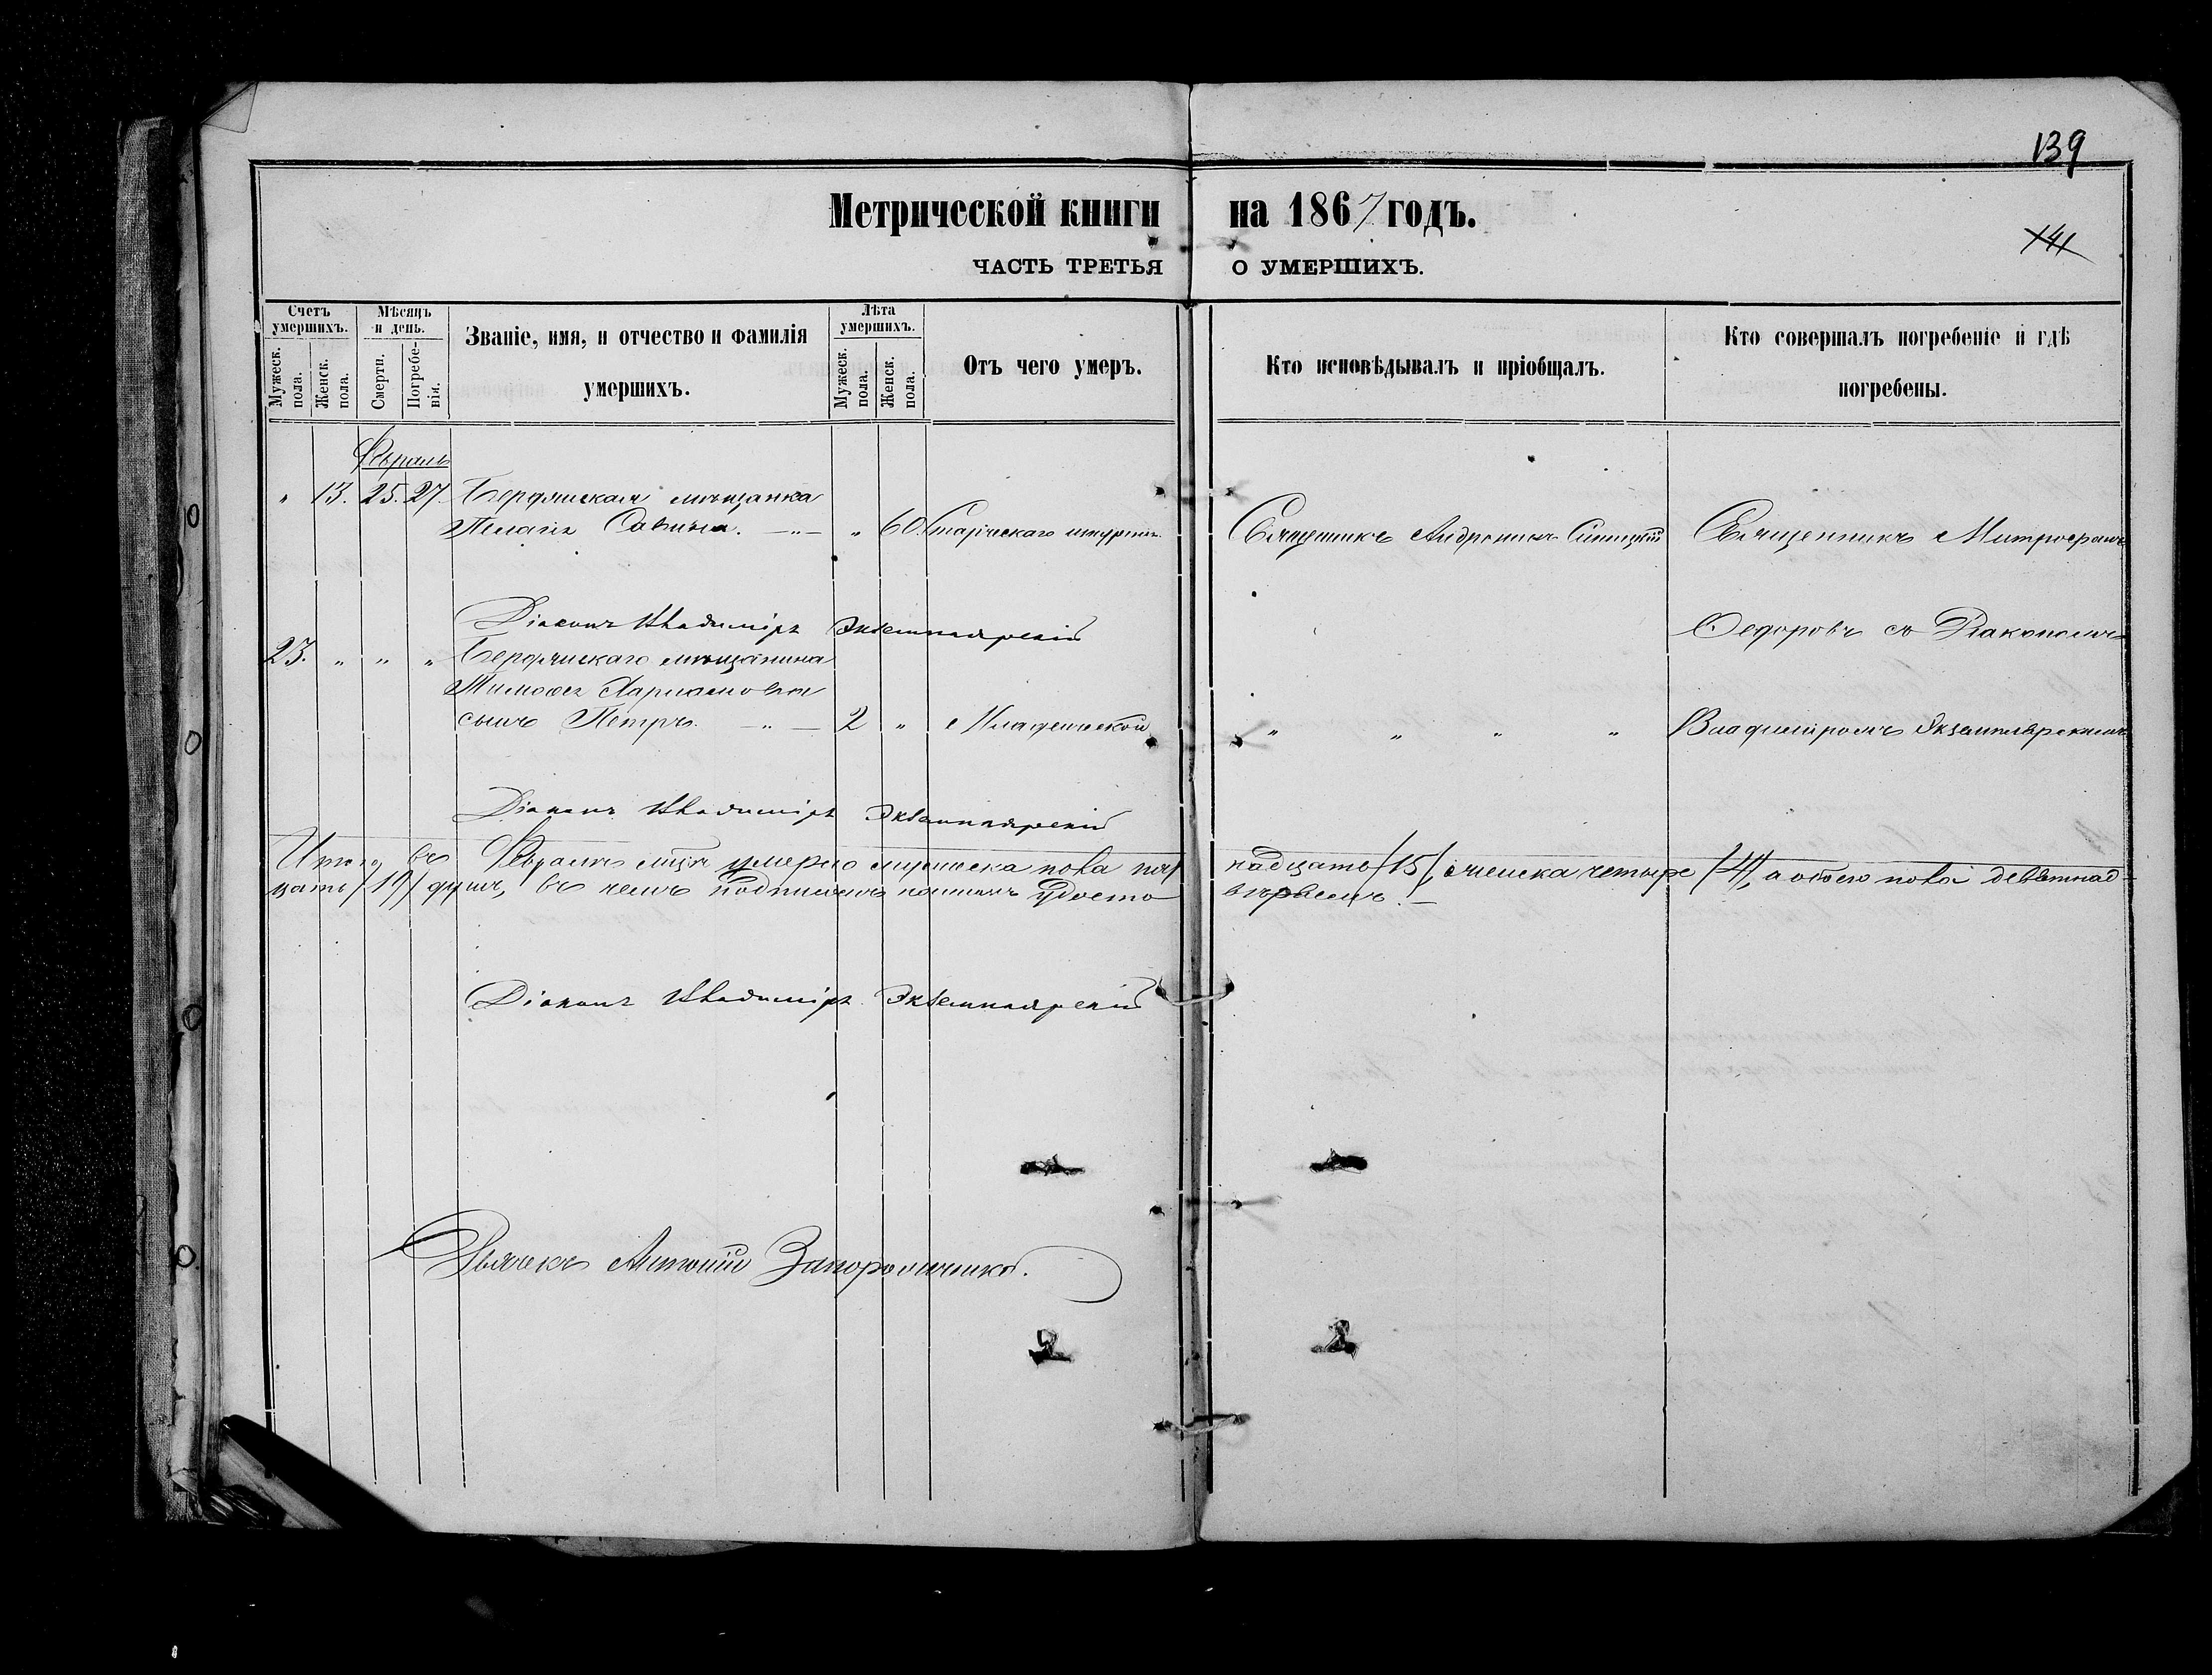 139
Метрической книги на 1867 годъ.
141
ЧАСТЬ ТРЕТЬЯ О УМЕРШИХЪ.
Счетъ умершихъ.
Мужеск. пола.
Женск. пола.
Мѣсяцъ и день.
Смерти.
Погребенія.
Званіе, имя, и отчество и фамилія умершихъ.
Лѣта умершихъ.
Мужеск. пола.
Женск. пола.
Отъ чего умеръ.
Кто исповѣдывалъ и пріобщалъ.
Кто совершалъ погребеніе и гдѣ погребены.
Февраль
" 13. 25. 27. Бердянская мѣщанка
Пелагія Савина. —"— " 60. Священникъ Андроникъ Синицкій Священникъ Митрофанъ
Діаконъ Владиміръ Экземплярскій
Федоровъ съ Діакономъ
23. " " " Бердянскаго мѣщанина
Тимофея
сынъ Петръ. —"— 2 " Младенческой " " " " Владиміромъ Экземплярскимъ
Діаконъ Владиміръ Экземплярскій
Итого въ Февралѣ мцѣ умерло мужеска пола пят надцать /15/, женска четыре /4/, а обоего пола девятнад-
цать /19/ душъ, въ чемъ подписомъ нашимъ удосто вѣряемъ. —
Діаконъ Владиміръ Экземплярскій
Дьячекъ Антоній Запорожченко.